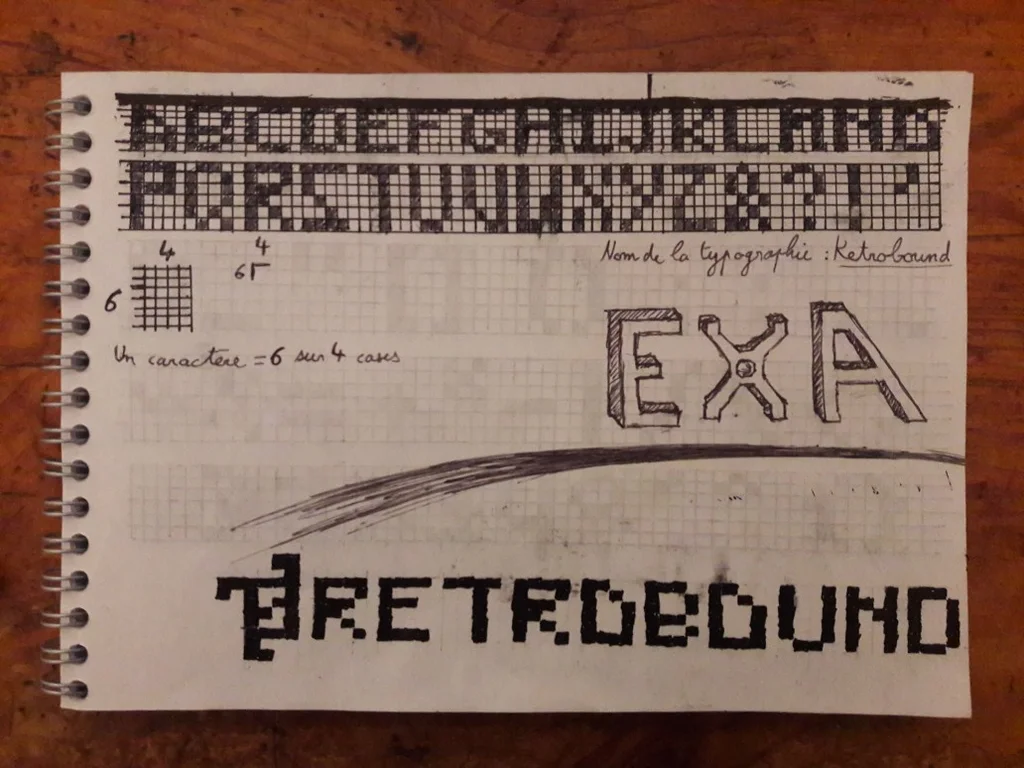 ABCDEFGHIJKLMNO
PQRSTUVWXYZ&?!'
4
4
6
6
Nom de la typographie : Retrobound
Un caractère = 6 sur 4 cases
EXA
RETROBOUND